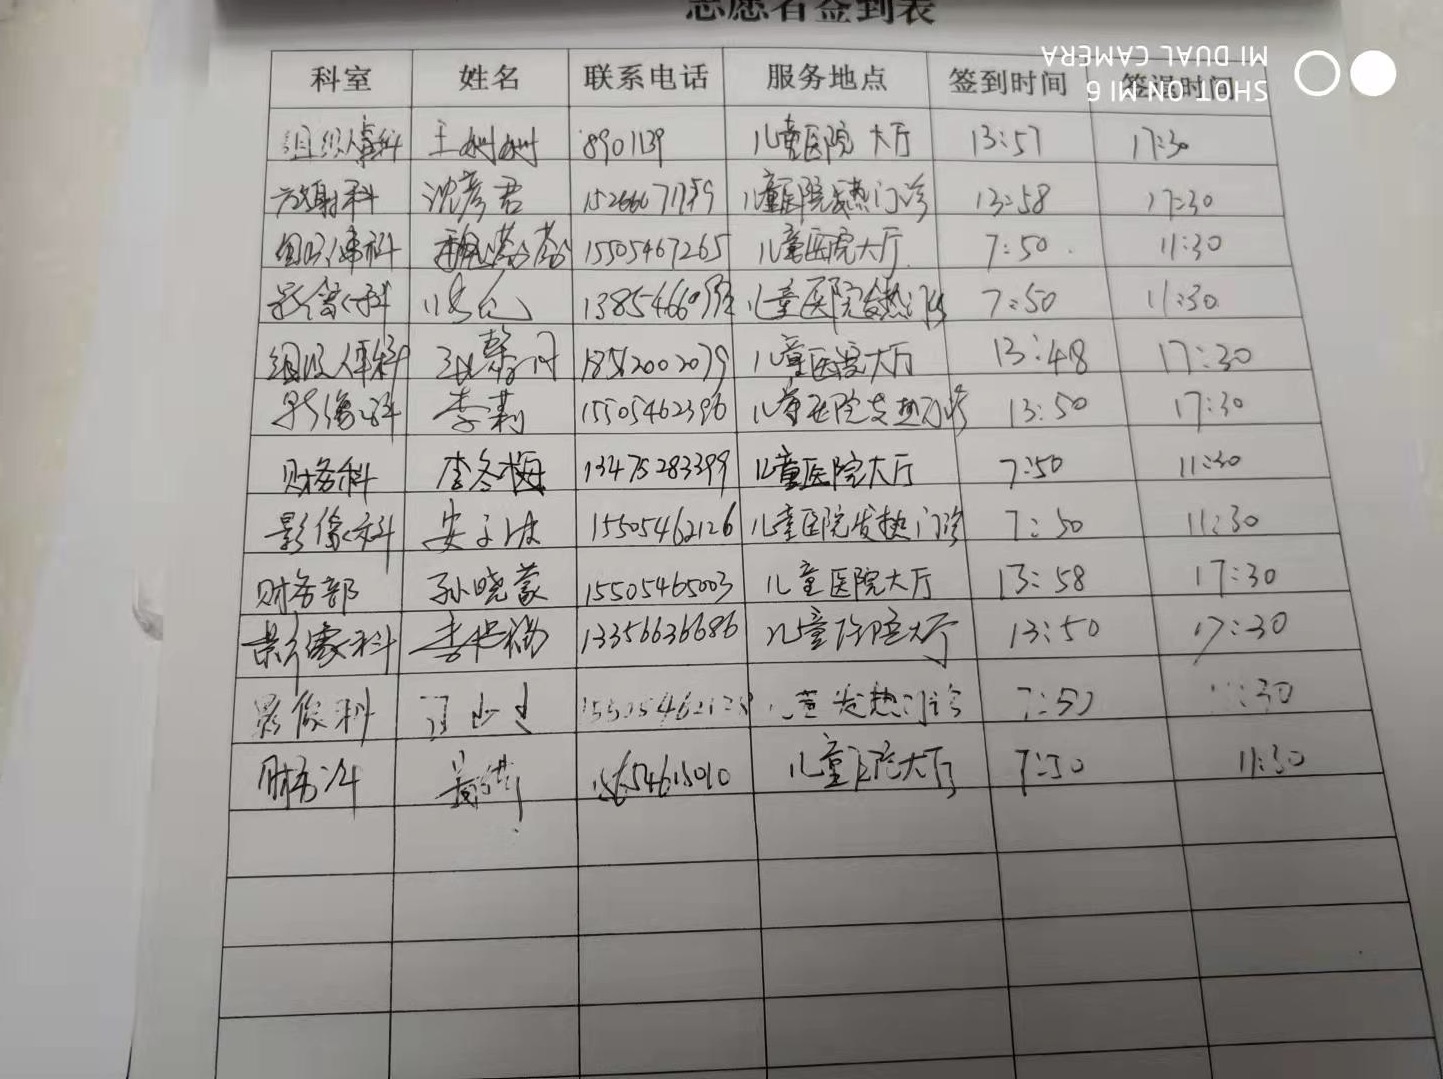 志愿者签到表
SHOT ON MI 6
MI DUAL CAMERA
科室 姓名 联系电话 服务地点 签到时间 签退时间
组织人事科 王树树 8901139 儿童医院 大厅 13:57 17:30
放射科 沈彦君 儿童医院发热门诊 13:58 17:30
15505467265 儿童医院大厅 7:50 11:30
影像科 儿童医院发热门诊 7:50 11:30
组织人事科 18512002079 儿童医院大厅 13:48 17:30
影像科 李莉 15505462396 儿童医院发热门诊 13:50 17:30
财务科 李冬梅 13475283399 儿童医院大厅 7:50 11:30
影像科 15505462126 儿童医院发热门诊 7:50 11:30
财务部 孙晓蒙 15505465003 儿童医院大厅 13:58 17:30
影像科 13356636686 儿童医院大厅 13:50 17:30
影像科 儿童发热门诊 7:50 11:30
财务科 儿童医院大厅 7:50 11:30